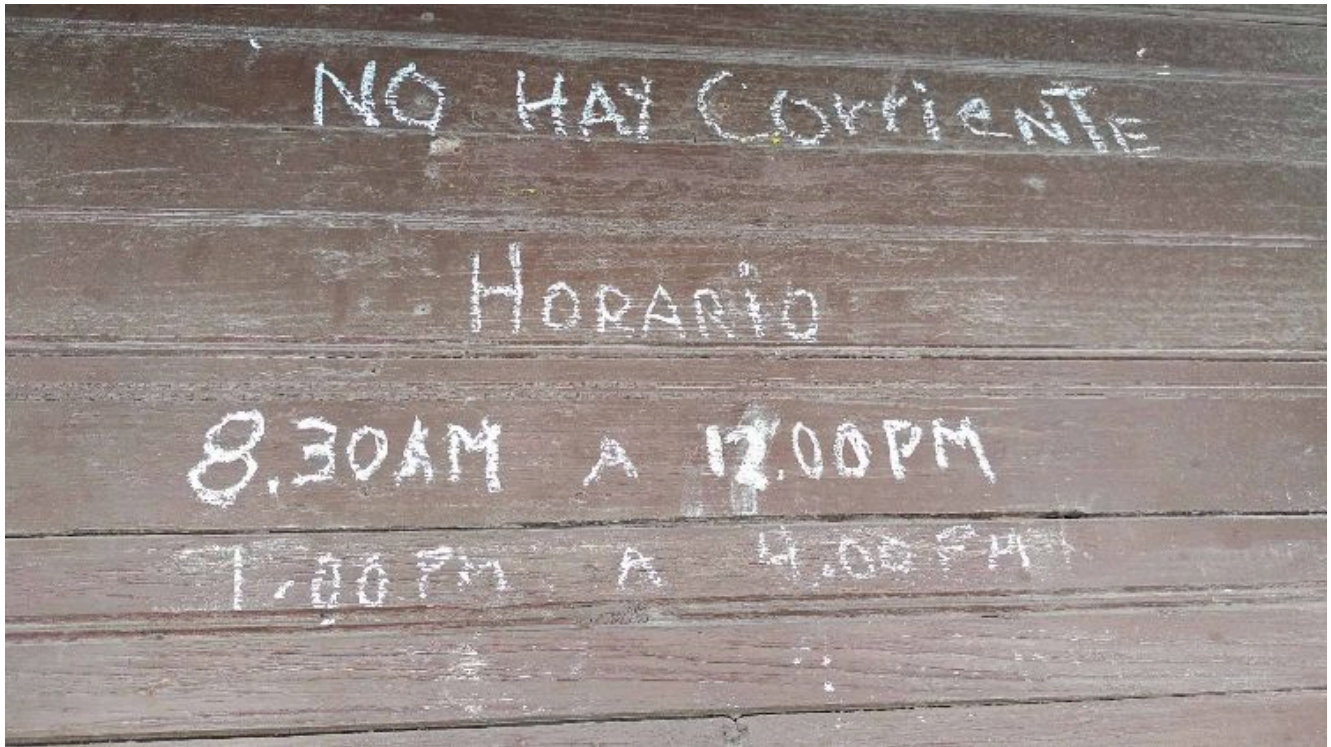 NO HAY CorrieNTE
HORARiO
8.30AM A 12.00PM
1.00PM A 4.00PM